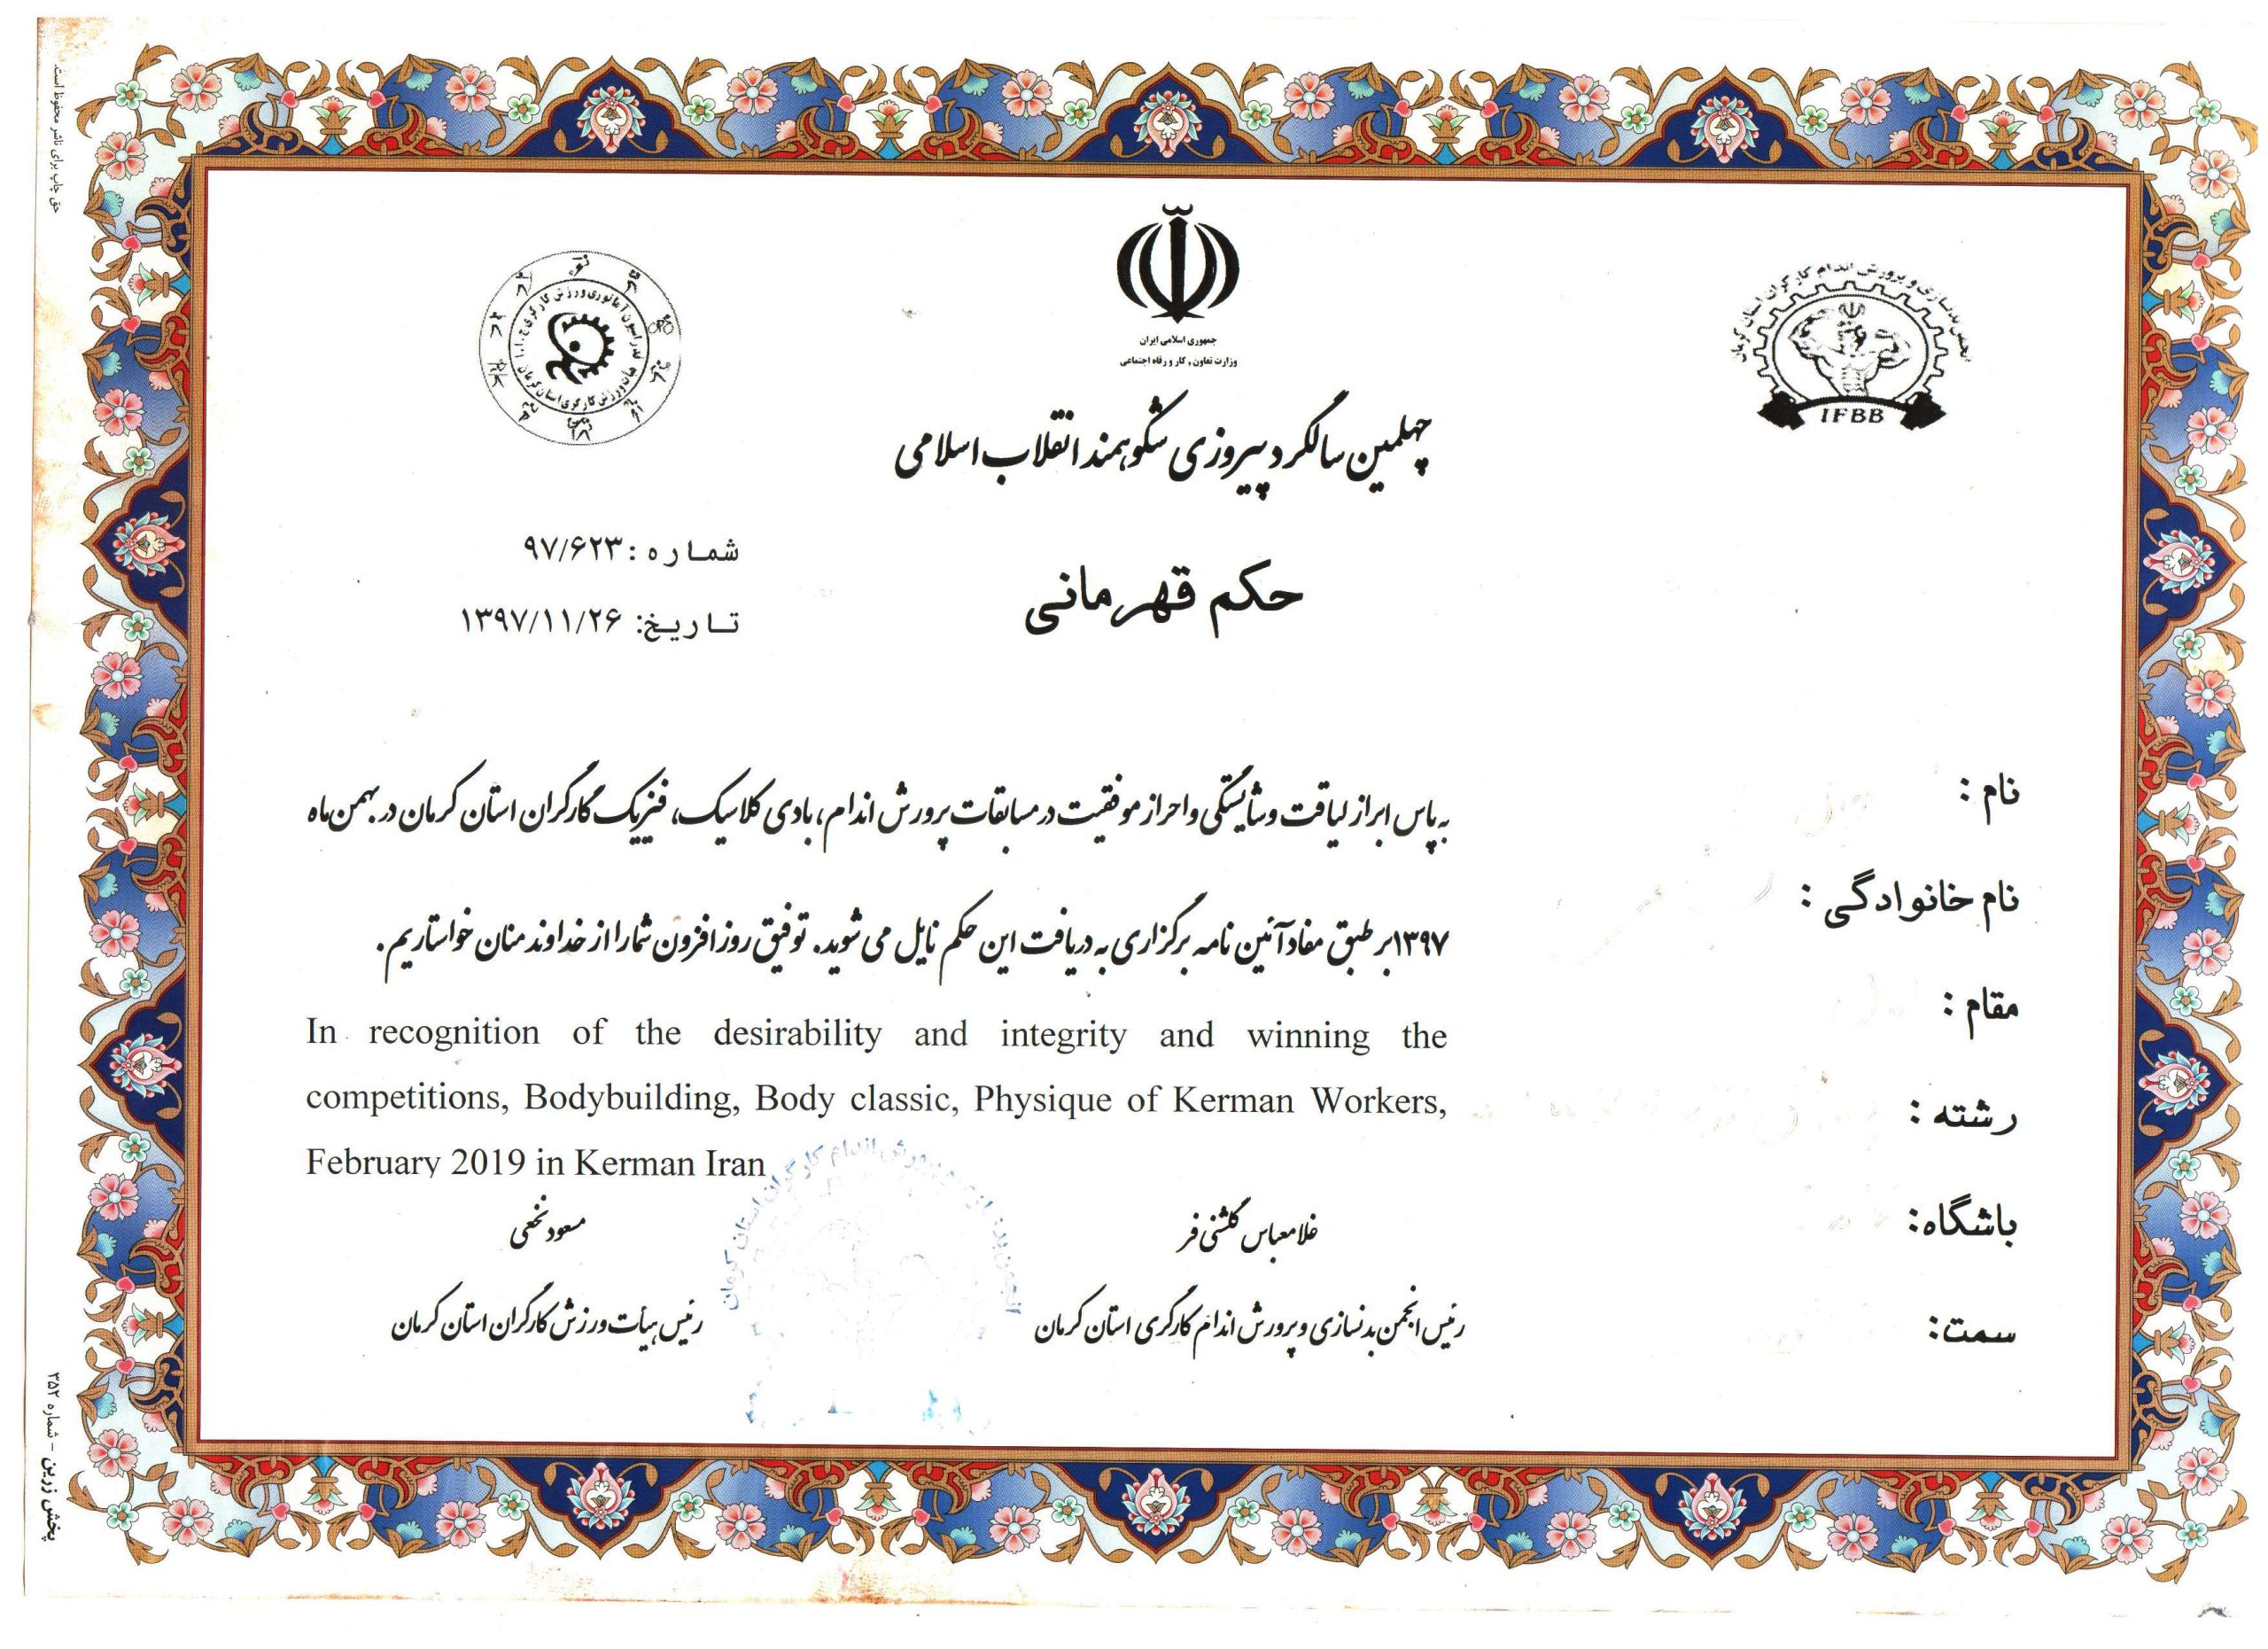 حق چاپ برای ناشر محفوظ است.
جمهوری اسلامی ایران
وزارت تعاون , کار و رفاه اجتماعی
انجمن بدنسازی و پرورش اندام کارگران استان کرمان
IFBB
فدراسیون آماتوری ورزش کارگری ج.ا.ا
هیات ورزش کارگری استان کرمان
چهلمین سالگرد پیروزی شکوهمند انقلاب اسلامی
شماره : ۹۷/۶۲۳
حکم قهرمانی
تاریخ: ۱۳۹۷/۱۱/۲۶
نام :
نام خانوادگی :
مقام :
رشته :
باشگاه:
سمت:
به پاس ابراز لیاقت و شایستگی و احراز موفقیت در مسابقات پرورش اندام، بادی کلاسیک، فیزیک کارگران استان کرمان در بهمن ماه
۱۳۹۷بر طبق مفاد آئین نامه برگزاری به دریافت این حکم نایل می شوید. توفیق روز افزون شما را از خداوند منان خواستاریم.
In recognition of the desirability and integrity and winning the
competitions, Bodybuilding, Body classic, Physique of Kerman Workers,
February 2019 in Kerman Iran
غلامعباس گلشنی فر
رئیس انجمن بدنسازی و پرورش اندام کارگری استان کرمان
مسعود نخعی
رئیس هیأت ورزش کارگران استان کرمان
پرورش اندام کارگران استان کرمان
پخش زرین - شماره ۳۵۲